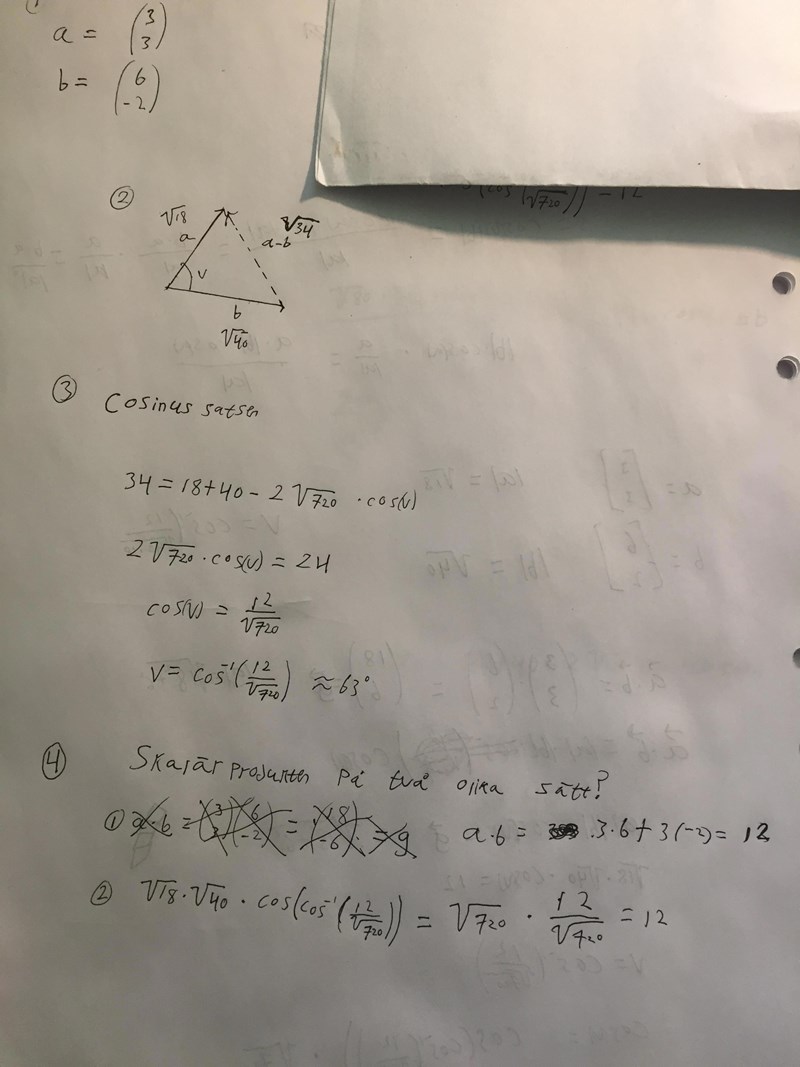 a = (3
3)
b = (6
-2)
②
√18
a
v
b
√40
√34
a-b
③ Cosinus satsen
34 = 18+40 - 2√720 · cos(v)
2√720 · cos(v) = 24
cos(v) = 12/√720
v = cos⁻¹(12/√720) ≈ 63°
④ Skalär produkten på två olika sätt?
① a·b = 3·6+3(-2) = 12
② √18·√40 · cos(cos⁻¹(12/√720)) = √720 · 12/√720 = 12